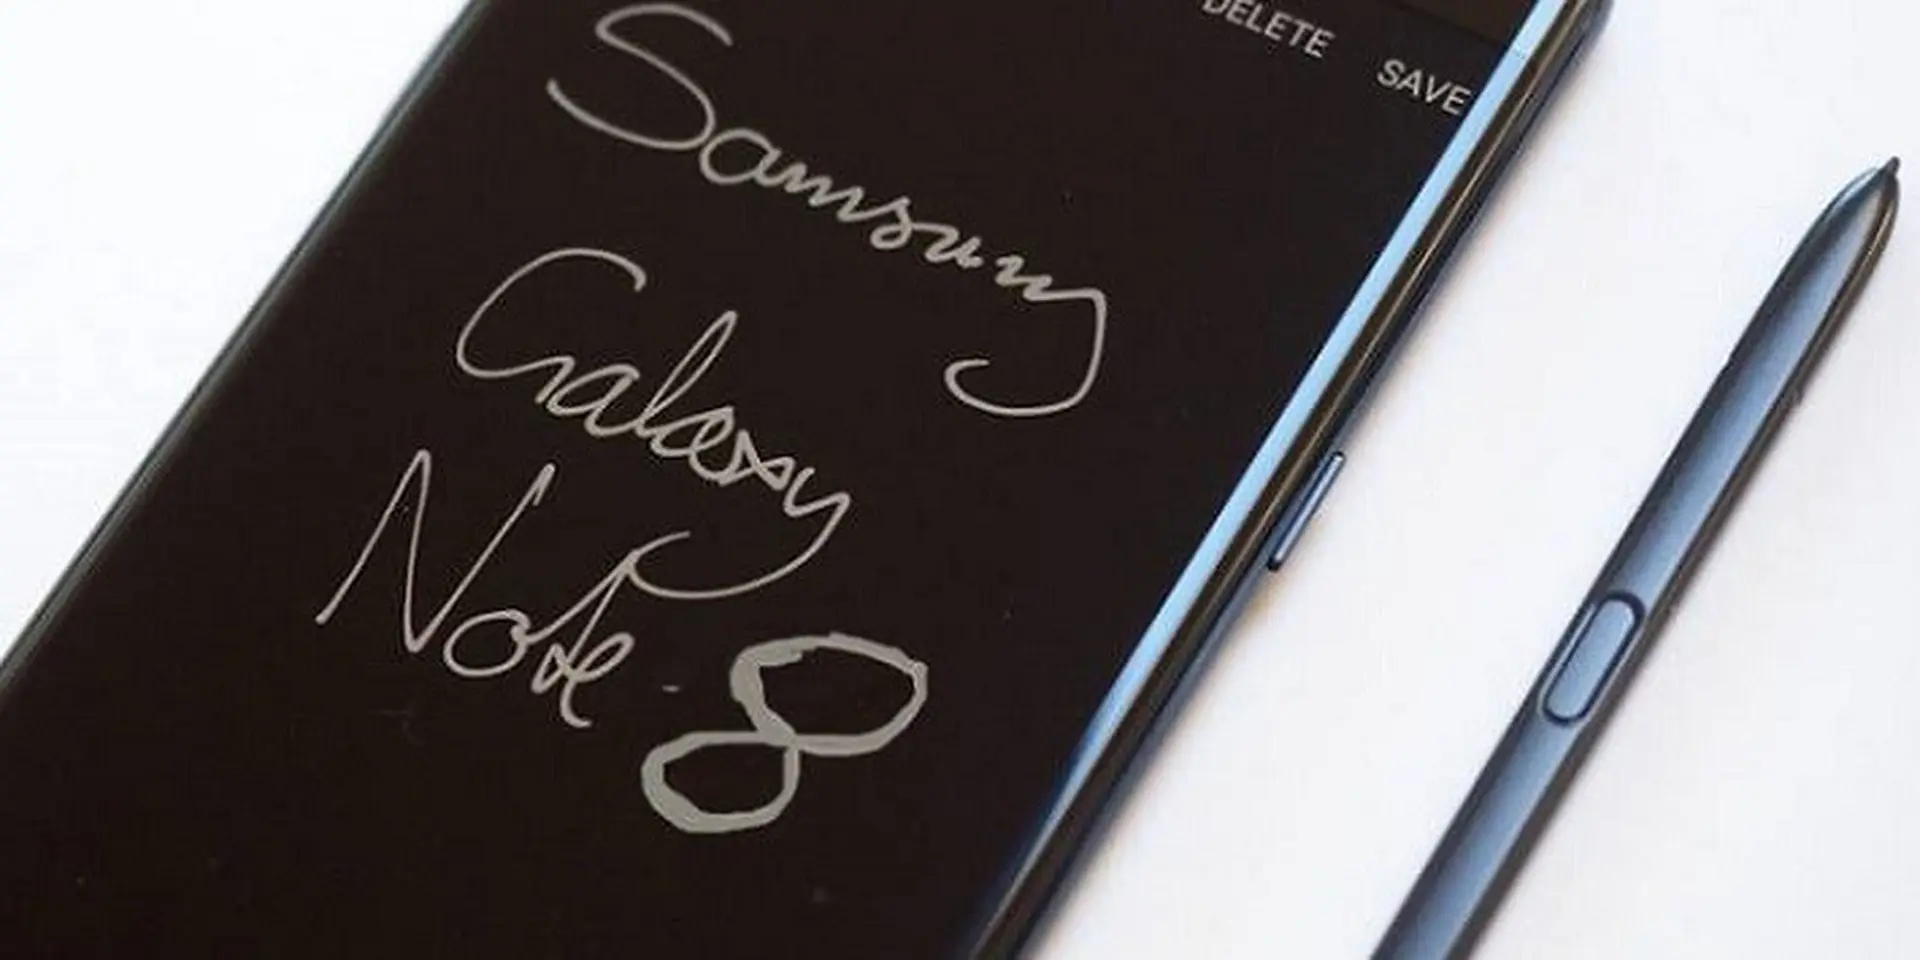 DELETE SAVE
Samsung
Galaxy
Note 8